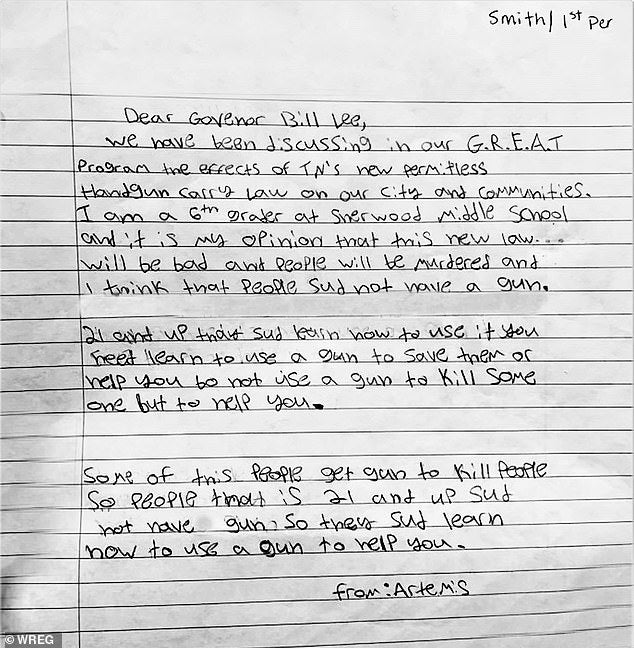 Smith/1st Per
Dear Govenor Bill Lee,
we have been discussing in our G.R.E.A.T
Program the effects of TN's new permitless
Handgun carry law on our city and communities.
I am a 6th grader at Sherwood Middle School
and it is my opinion that this new law...
will be bad and people will be murdered and
I think that people sud not have a gun.
21 and up thay sud learn how to use it you
need learn to use a gun to save them or
help you do not use a gun to kill some
one but to help you.
Some of this people get gun to kill people
So people that is 21 and up sud
not have gun. So they sud learn
how to use a gun to help you.
from: Artemis
© WREG